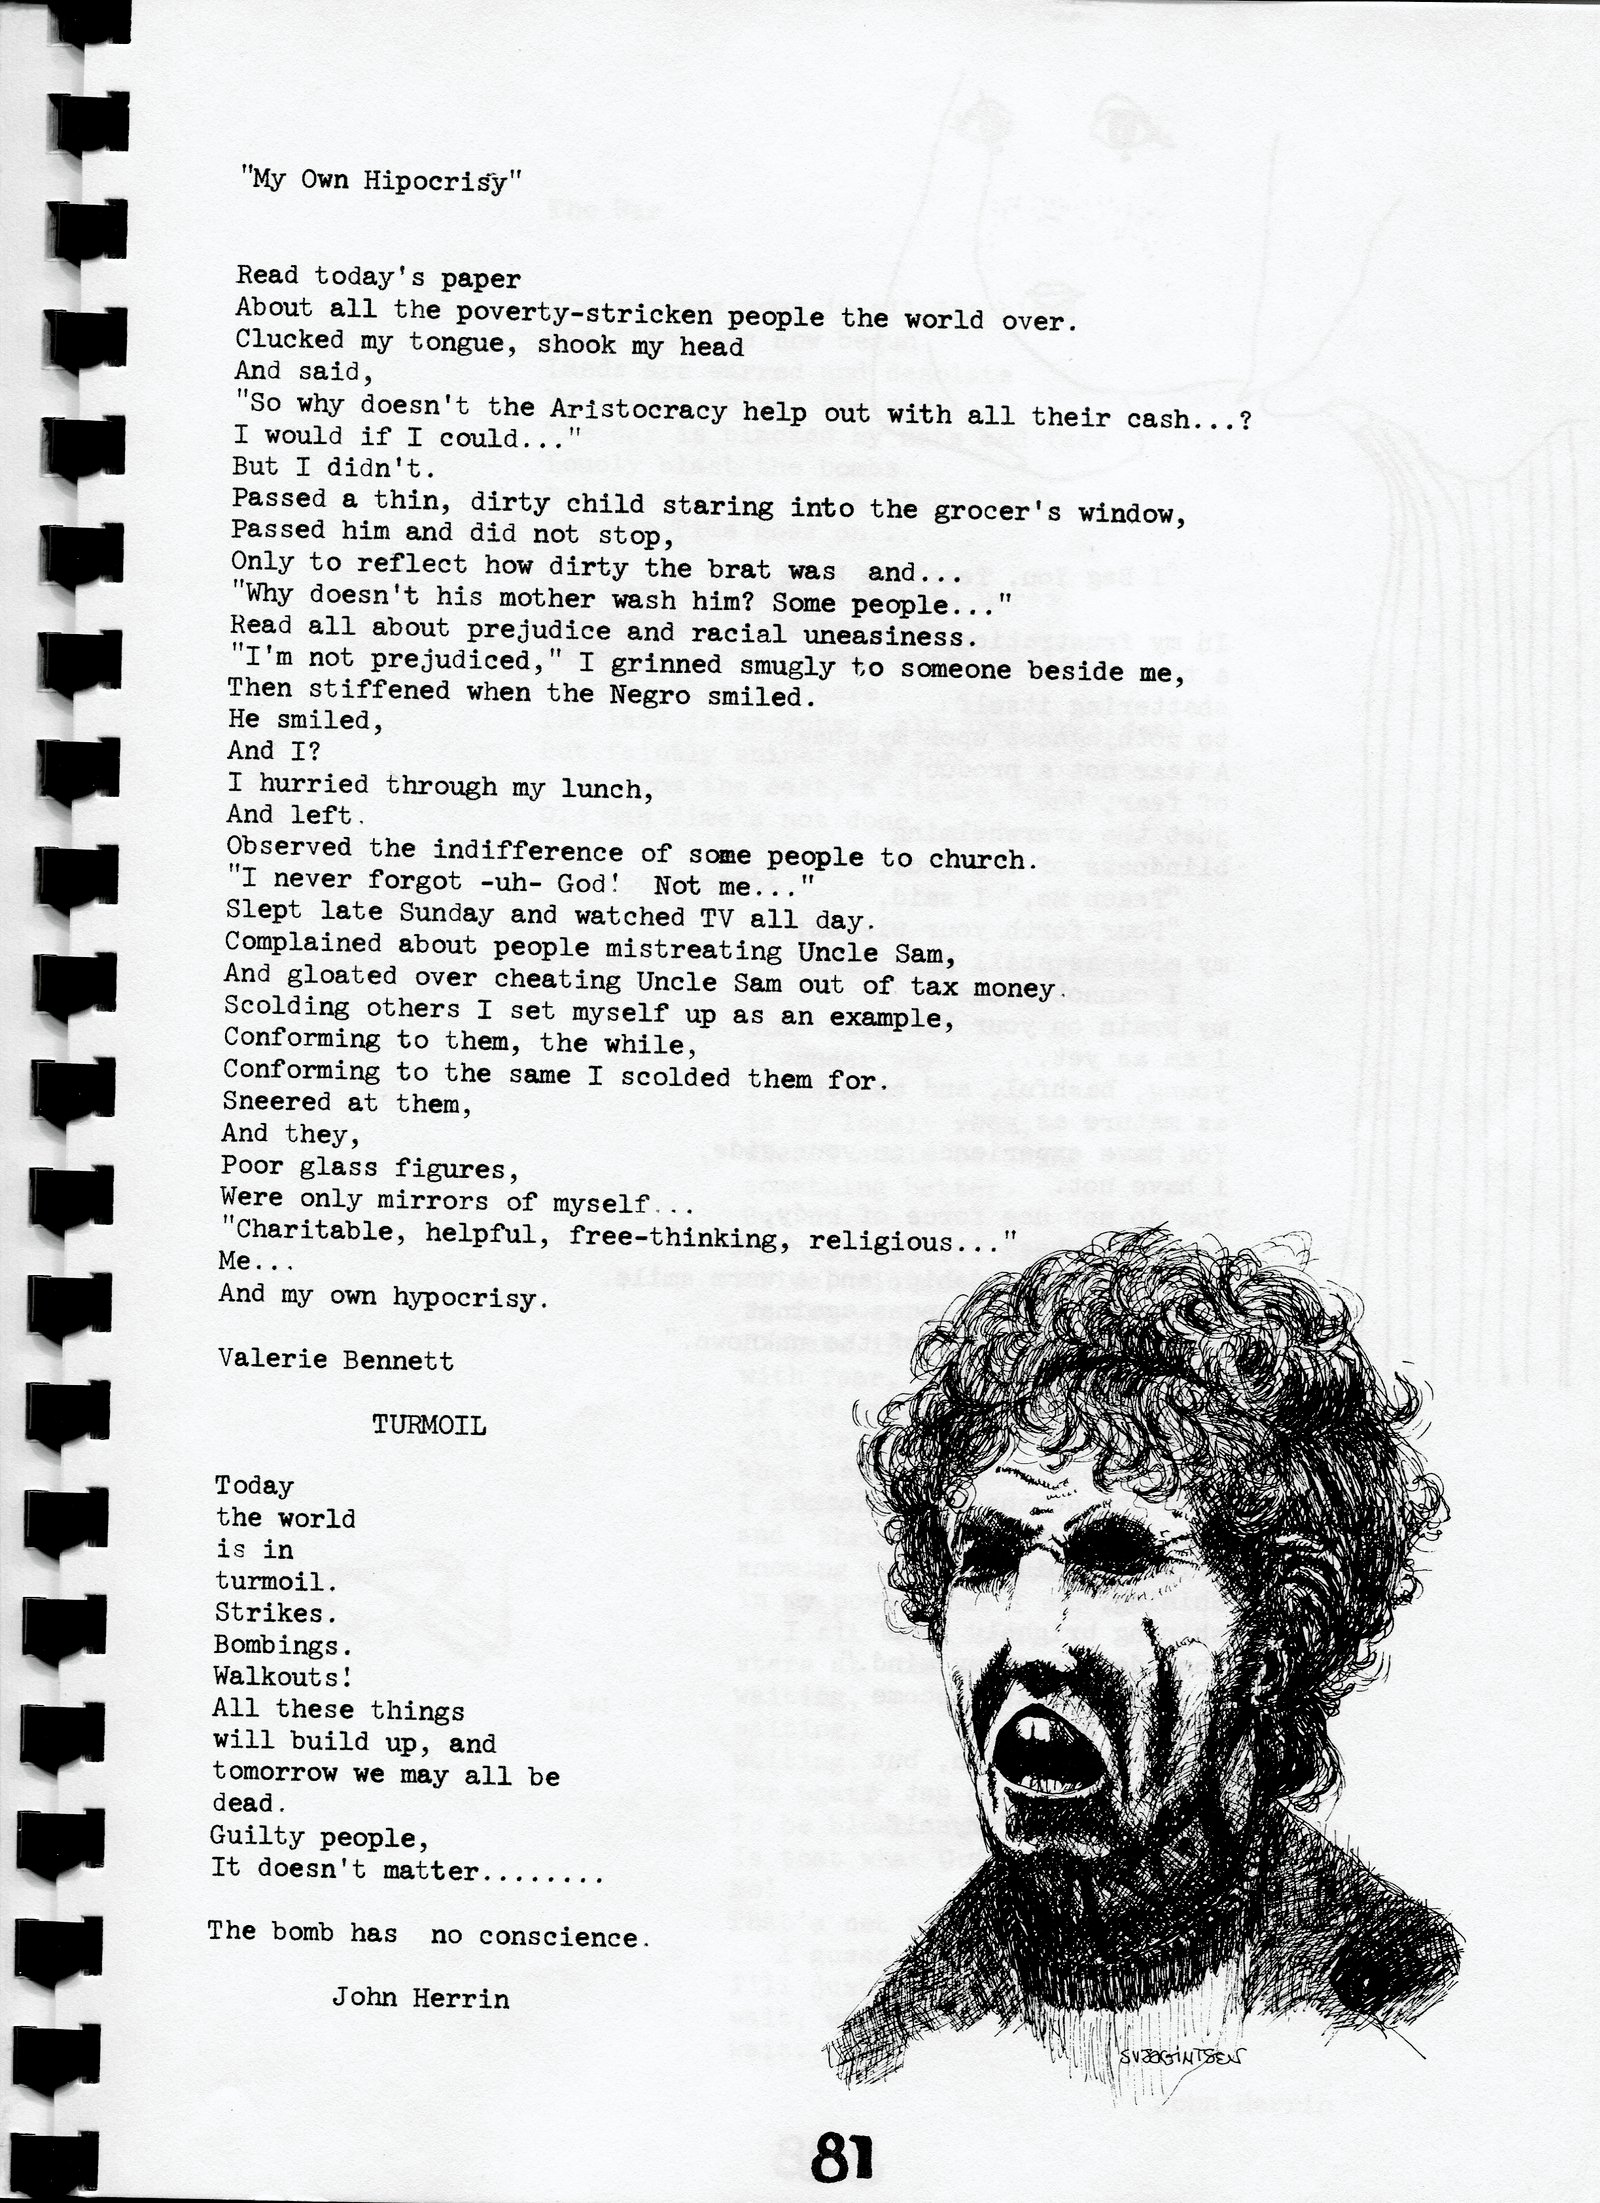 "My Own Hipocrisy"
Read today's paper
About all the poverty-stricken people the world over.
Clucked my tongue, shook my head
And said,
"So why doesn't the Aristocracy help out with all their cash...?
I would if I could..."
But I didn't.
Passed a thin, dirty child staring into the grocer's window,
Passed him and did not stop,
Only to reflect how dirty the brat was  and...
"Why doesn't his mother wash him? Some people..."
Read all about prejudice and racial uneasiness.
"I'm not prejudiced," I grinned smugly to someone beside me,
Then stiffened when the Negro smiled.
He smiled,
And I?
I hurried through my lunch,
And left.
Observed the indifference of some people to church.
"I never forgot -uh- God!  Not me..."
Slept late Sunday and watched TV all day.
Complained about people mistreating Uncle Sam,
And gloated over cheating Uncle Sam out of tax money.
Scolding others I set myself up as an example,
Conforming to them, the while,
Conforming to the same I scolded them for.
Sneered at them,
And they,
Poor glass figures,
Were only mirrors of myself...
"Charitable, helpful, free-thinking, religious..."
Me...
And my own hypocrisy.
Valerie Bennett
TURMOIL
Today
the world
is in
turmoil.
Strikes.
Bombings.
Walkouts!
All these things
will build up, and
tomorrow we may all be
dead.
Guilty people,
It doesn't matter........
The bomb has  no conscience.
John Herrin
81